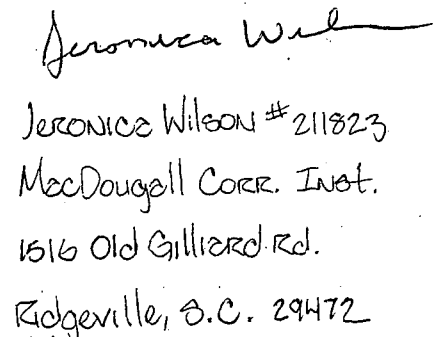 Jeronica Wil
Jeronica Wilson #211823
MacDougall Corr. Inst.
1516 Old Gilliard Rd.
Ridgeville, S.C. 29472